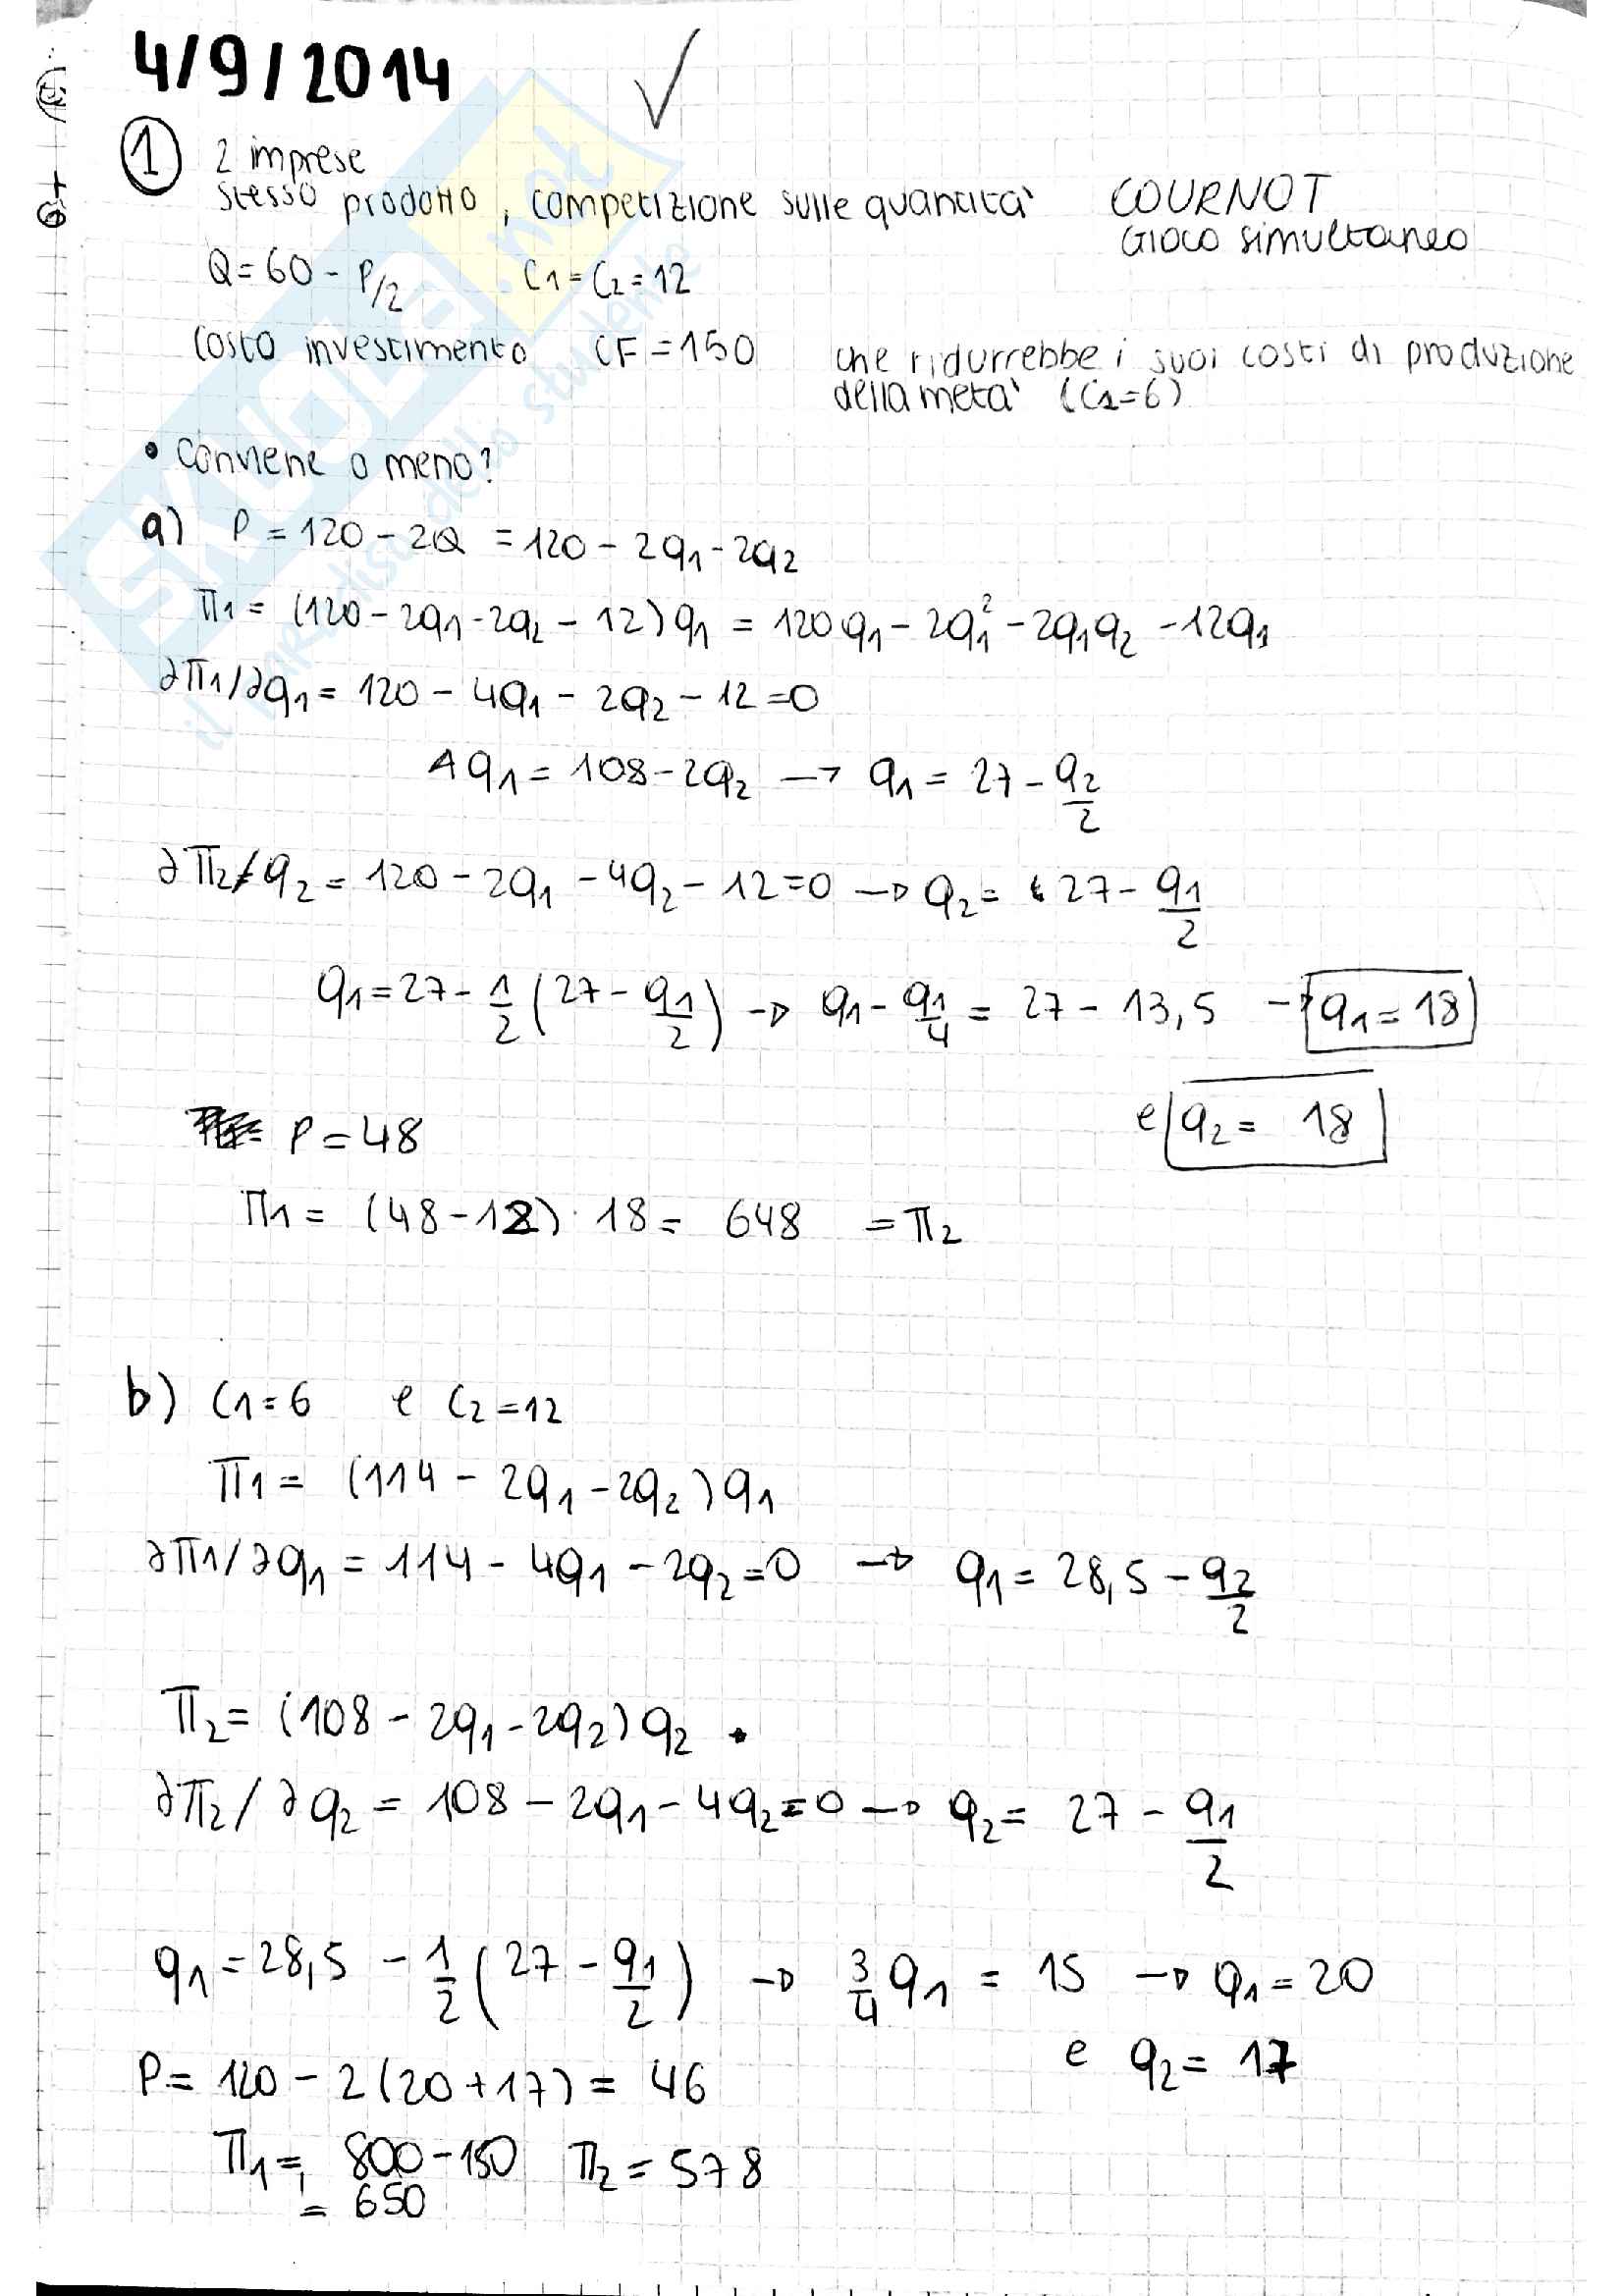 4/9/2014 ✓
① 2 imprese
stesso prodotto, competizione sulle quantità COURNOT
GIOCO simultaneo
Q=60-P/2 C1=C2=12
Costo investimento CF=150 che ridurrebbe i suoi costi di produzione
della metà (C1=6)
• Conviene o meno?
a) P=120-2Q = 120-2q1-2q2
π1 = (120-2q1-2q2-12)q1 = 120q1-2q1²-2q1q2-12q1
∂π1/∂q1 = 120-4q1-2q2-12=0
4q1=108-2q2 → q1=27-q2/2
∂π2/q2 = 120-2q1-4q2-12=0 → q2= 27-q1/2
q1=27-1/2(27-q1/2) → q1-q1/4 = 27-13,5 → q1=18
P=48 e q2= 18
π1 = (48-12)·18= 648 =π2
b) C1=6 e C2=12
π1 = (114-2q1-2q2)q1
∂π1/∂q1 = 114-4q1-2q2=0 → q1=28,5-q2/2
π2=(108-2q1-2q2)q2
∂π2/∂q2 = 108-2q1-4q2=0 → q2= 27-q1/2
q1=28,5-1/2(27-q1/2) → 3/4q1 = 15 → q1=20
e q2=17
P= 120-2(20+17)= 46
π1= 800-150 π2=578
= 650
SKUOLA.net
il paradiso dello studente